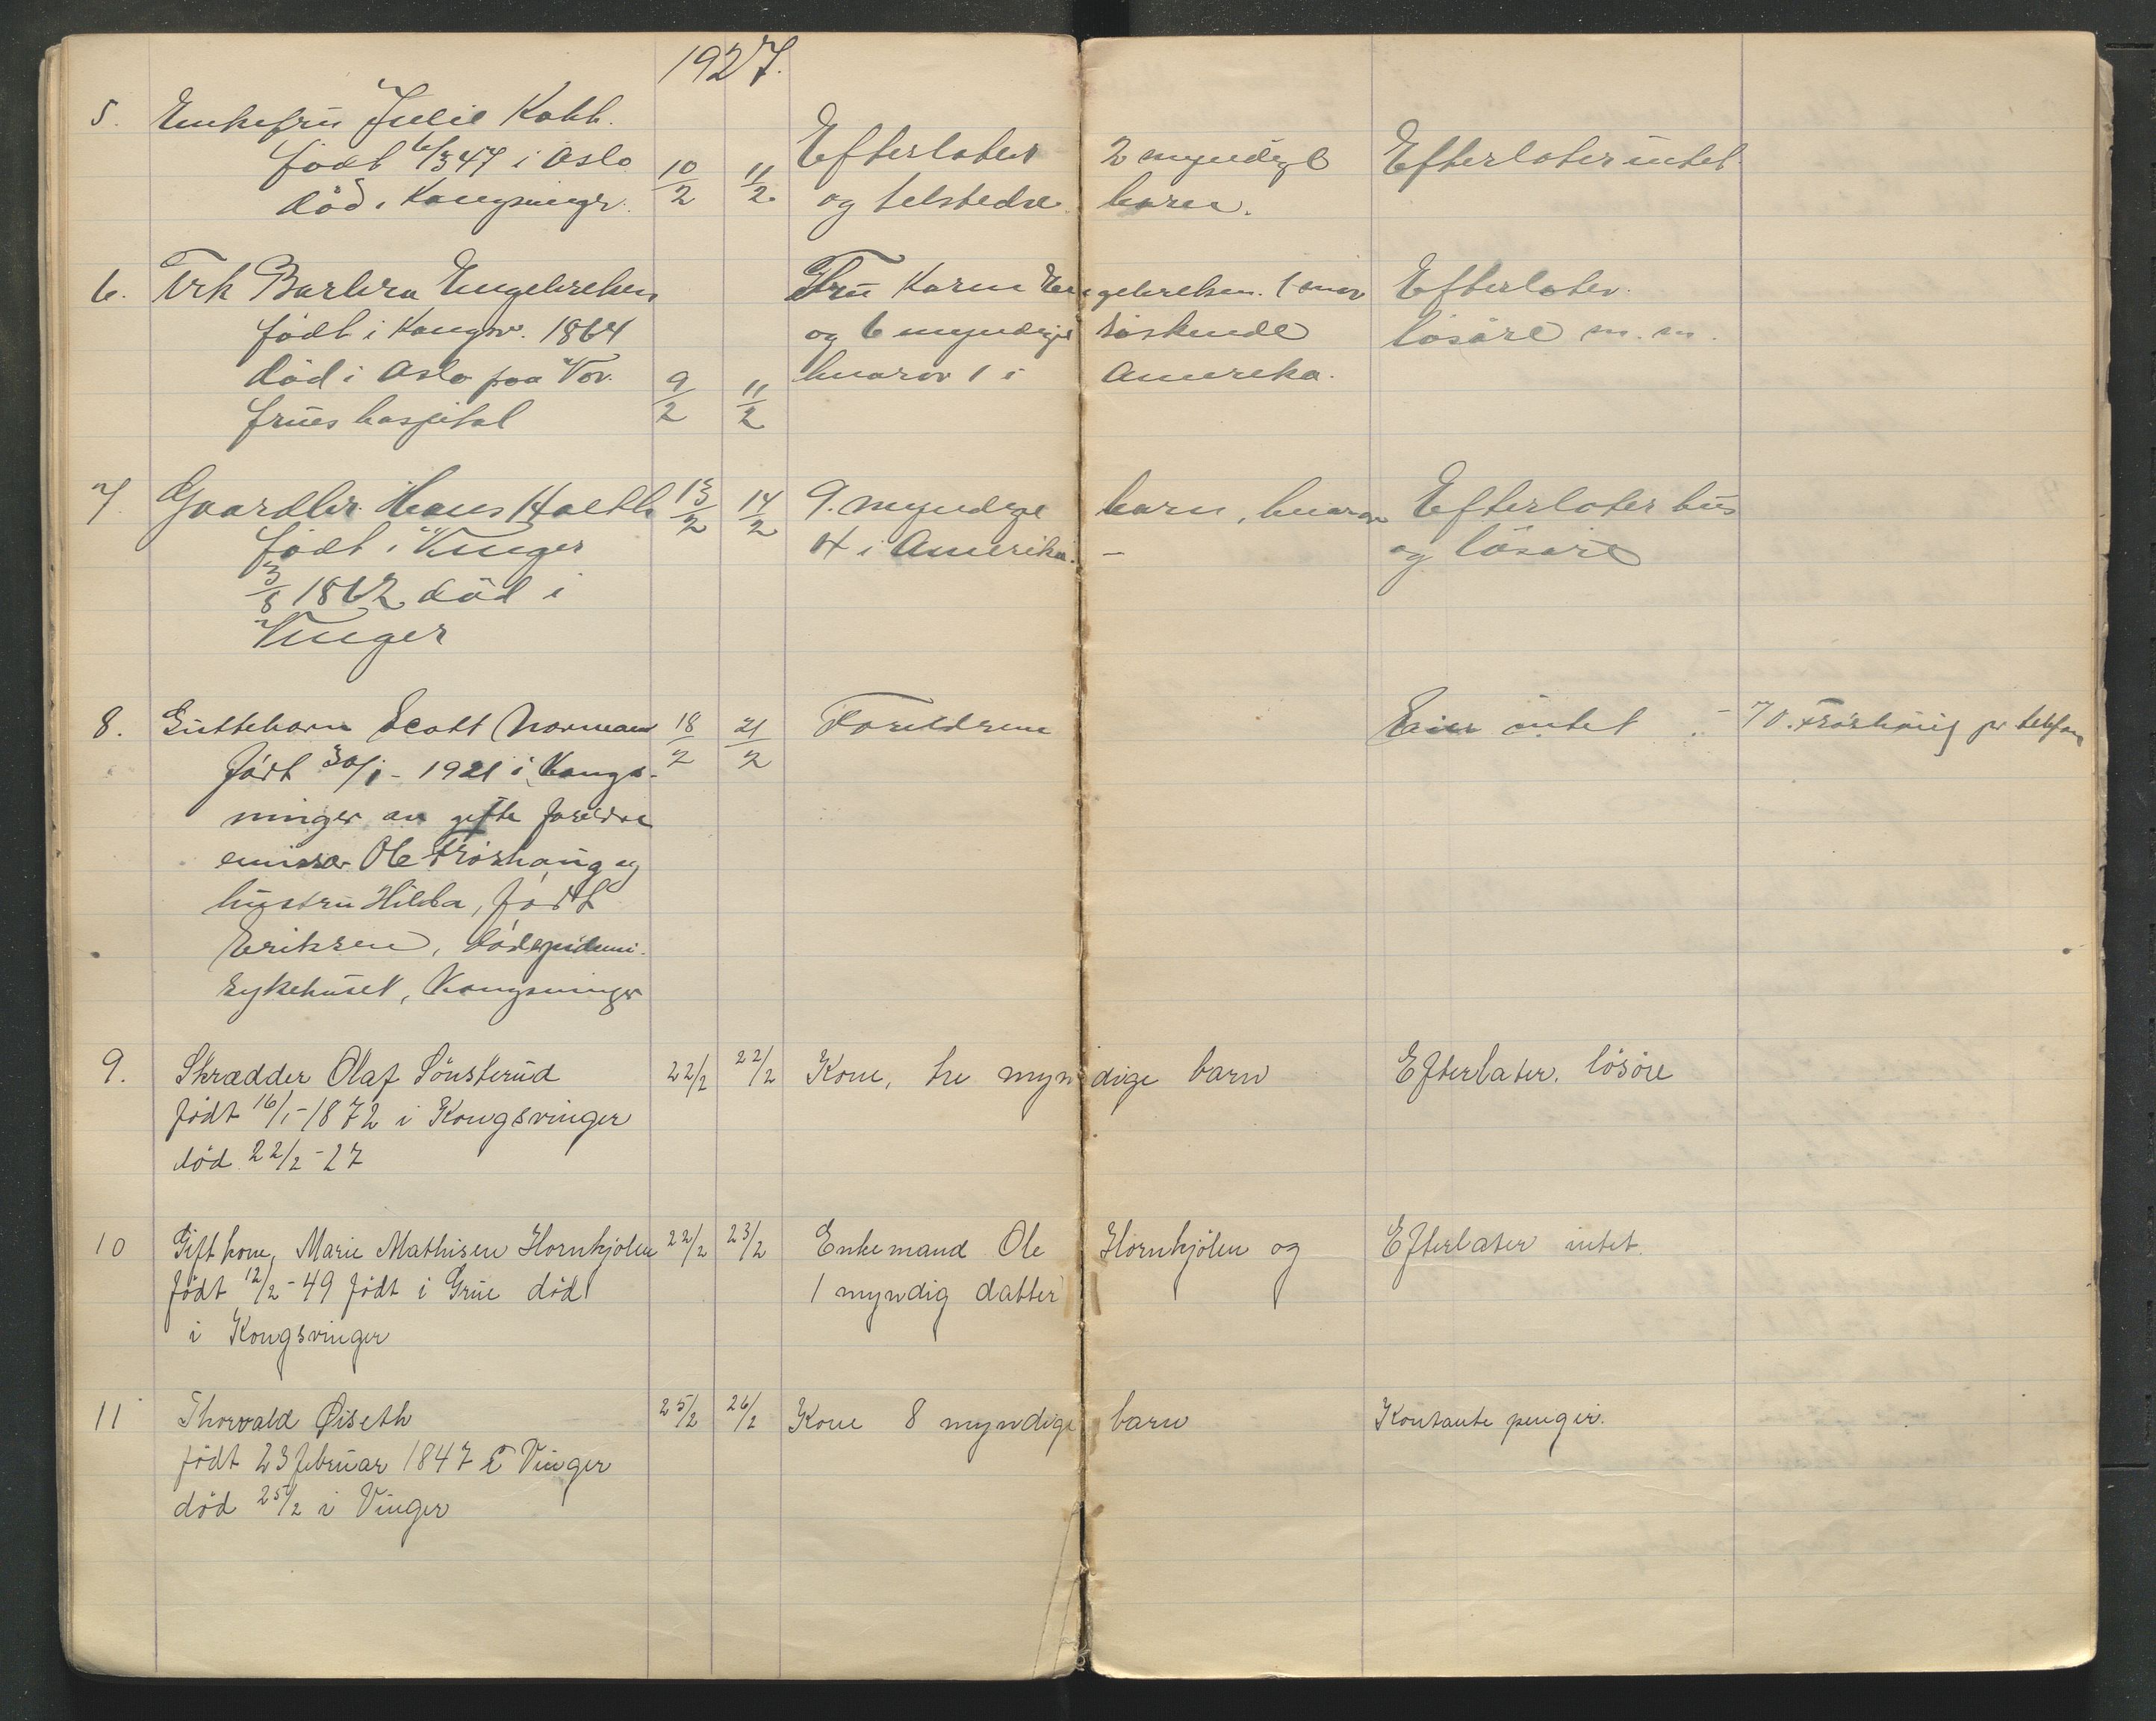 1927.
5. Enkefru Julie Kobb. Efterlater 2 myndige Efterlater intet.
født 6/3 47 i Oslo 10/2 11/2 og barn.
død i Kongsvinger.
6. Frk Barbra Engebretsen Fru Karen Engebretsen. 1 mor Efterlater.
født i Kongsv. 1864 og 6 myndige søskende løsøre m.m.
død i Oslo paa Vor 9/2 11/2 hvorav 1 i Amerika.
frues hospital
7 Gaardbr. Hans Holth 13/2 14/2 9. myndige barn, hvorav Efterlater hus
født i Vinger 4 i Amerika. - og løsøre
3/8 1862 død i
Vinger
8. Guttebarn Scott Norman 18/2 21/2 Foreldrene Eier intet : - 70. Frøshaug pr telefon
født 30/1 - 1921 i Kongs-
vinger av gifte foreldre
emissær Ole Frøshaug og
hustru Hilda, født
Eriksen, død epidemi.
sykehuset, Kongsvinger
9. Skrædder Olaf Sønsterud 22/2 22/2 Kone, tre myndige barn Efterlater. løsøre
født 16/1-1872 i Kongsvinger
død 22/2-27
10 Gift kone, Marie Mathisen Hornkjølen 22/2 23/2 Enkemand Ole Hornkjølen og Efterlater intet.
født 12/2-49 født i Grue død 1 myndig datter
i Kongsvinger
11 Thorvald Øiseth 25/2 26/2 Kone 8 myndige barn Kontante penger.
født 23 februar 1847 i Vinger
død 25/2 i Vinger